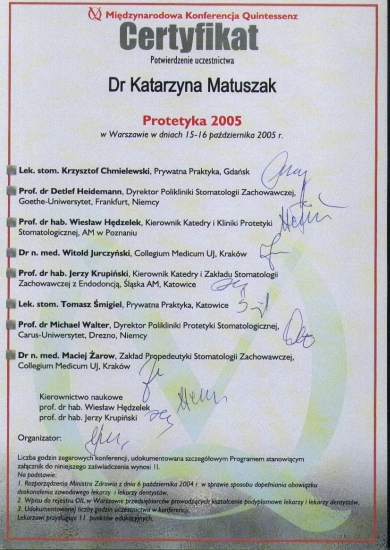 Międzynarodowa Konferencja Quintessenz
Certyfikat
Potwierdzenie uczestnictwa
Dr Katarzyna Matuszak
Protetyka 2005
w Warszawie w dniach 15-16 października 2005 r.
Lek. stom. Krzysztof Chmielewski, Prywatna Praktyka, Gdańsk
Prof. dr Detlef Heidemann, Dyrektor Polikliniki Stomatologii Zachowawczej,
Goethe-Uniwersytet, Frankfurt, Niemcy
Prof. dr hab. Wiesław Hędzelek, Kierownik Katedry i Kliniki Protetyki
Stomatologicznej, AM w Poznaniu
Dr n. med. Witold Jurczyński, Collegium Medicum UJ, Kraków
Prof. dr hab. Jerzy Krupiński, Kierownik Katedry i Zakładu Stomatologii
Zachowawczej z Endodoncją, Śląska AM, Katowice
Lek. stom. Tomasz Śmigiel, Prywatna Praktyka, Katowice
Prof. dr Michael Walter, Dyrektor Polikliniki Protetyki Stomatologicznej,
Carus-Uniwersytet, Drezno, Niemcy
Dr n. med. Maciej Żarow, Zakład Propedeutyki Stomatologii Zachowawczej,
Collegium Medicum UJ, Kraków
Kierownictwo naukowe
prof. dr hab. Wiesław Hędzelek
prof. dr hab. Jerzy Krupiński
Organizator:
Liczba godzin zegarowych konferencji, udokumentowana szczegółowym Programem stanowiącym
załącznik do niniejszego zaświadczenia wynosi 11.
Na podstawie:
1. Rozporządzenia Ministra Zdrowia z dnia 6 października 2004 r. w sprawie sposobu dopełniania obowiązku
doskonalenia zawodowego lekarzy i lekarzy dentystów.
2. Wpisu do rejestru OIL w Warszawie przedsiębiorców prowadzących kształcenie podyplomowe lekarzy i lekarzy dentystów.
3. Udokumentowanej liczby godzin uczestnictwa w konferencji.
Lekarzowi przysługuje 11 punktów edukacyjnych.